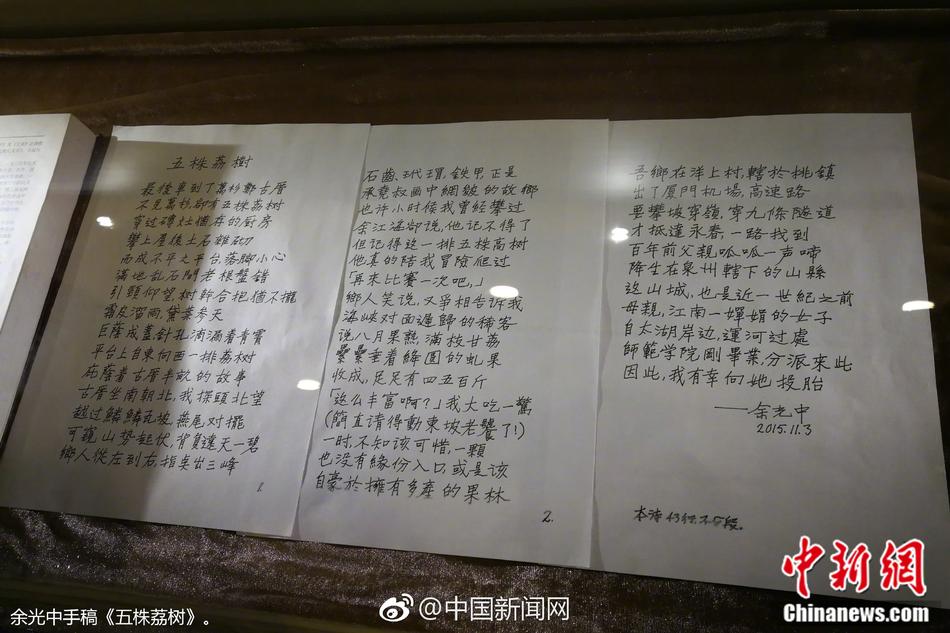 五株荔樹
最後車到了萬杉鄭古厝
不見萬杉,卻有五株荔树
穿过磚灶猶存的厨房
攀上屋後土石雜砌
而成不平之平台,落脚小心
滿地乱石鬥老根盤錯
引頸仰望,樹幹合抱猶不攏
霜皮溜雨,黛葉参天
巨蔭成蓋,針孔滴漏着青霄
平台上自東向西一排荔树
庇蔭着古厝半畝的故事
古厝坐南朝北,我探頭北望
越过鱗鱗瓦坡,燕尾对擺
可窺山势起伏,背負遠天一碧
鄉人從左到右,指点出三峰
1.
石齒、玳瑁,鉄甲正是
承堯叔画中皴皴的故鄉
也许小时候我曾經攀过
余江海卻說,他记不得了
但记得这一排五株高树
他真的陪我冒險爬过
「再來比賽一次吧,」
鄉人笑説,又爭相告訴我
海峽对面遲歸的稀客
说八月果熟滿枝甘荔
纍纍垂着絳圓的虬果
收成,足足有四五百斤
「这么丰富啊?」我大吃一驚
(簡直請得動東坡老饕了!)
一时,不知该可惜,一顆
也没有緣份入口,或是该
自豪於擁有多產的果林
2.
吾鄉在洋上村,轄於桃鎮
出了厦門机場,高速路
要攀坡穿嶺,穿九條隧道
才抵達永春,一路找到
百年前父親呱呱一声啼
降生在泉州轄下的山縣
这山城,也是近一世紀之前
母親,江南一嬋娟的女子
自太湖岸边,運河过處
師範学院剛畢業,分派來此
因此,我有幸向她投胎
——余光中
2015.11.3
本诗43行,不分段。
中新网
Chinanews.com
@中国新闻网
余光中手稿《五株荔树》。